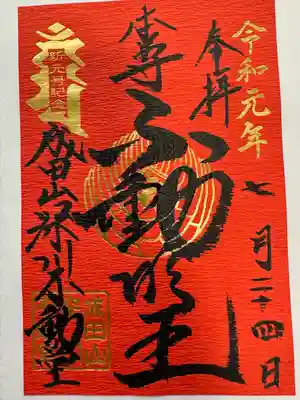 令和元年
七月二十四日
奉拝
本尊
不動明王
新元号記念
成田山深川不動堂